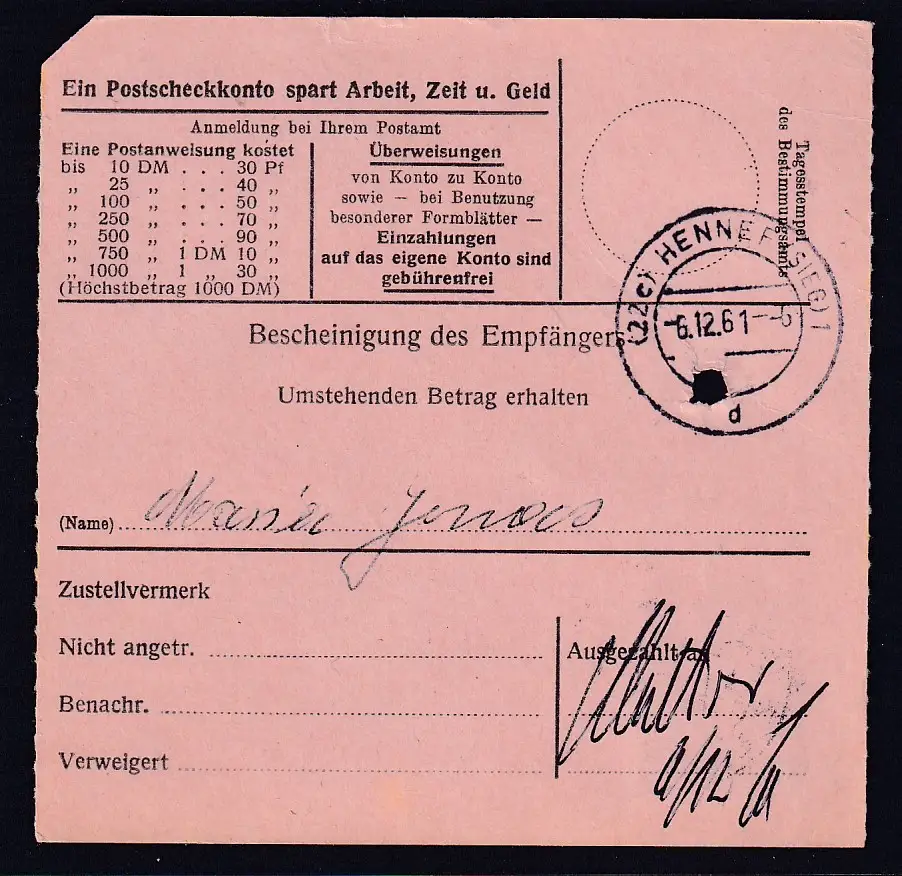 Ein Postscheckkonto spart Arbeit, Zeit u. Geld
Anmeldung bei Ihrem Postamt
Eine Postanweisung kostet
bis 10 DM . . . 30 Pf
„ 25 „ . . . 40 „
„ 100 „ . . . 50 „
„ 250 „ . . . 70 „
„ 500 „ . . . 90 „
„ 750 „ 1 DM 10 „
„ 1000 „ 1 „ 30 „
(Höchstbetrag 1000 DM)
Überweisungen
von Konto zu Konto
sowie — bei Benutzung
besonderer Formblätter —
Einzahlungen
auf das eigene Konto sind
gebührenfrei
Tagesstempel
des Bestimmungsamts
(22c) HENNEF (SIEG) 1
6.12.61
d
Bescheinigung des Empfängers
Umstehenden Betrag erhalten
(Name)
Zustellvermerk
Nicht angetr.
Benachr.
Verweigert
Ausgezahlt